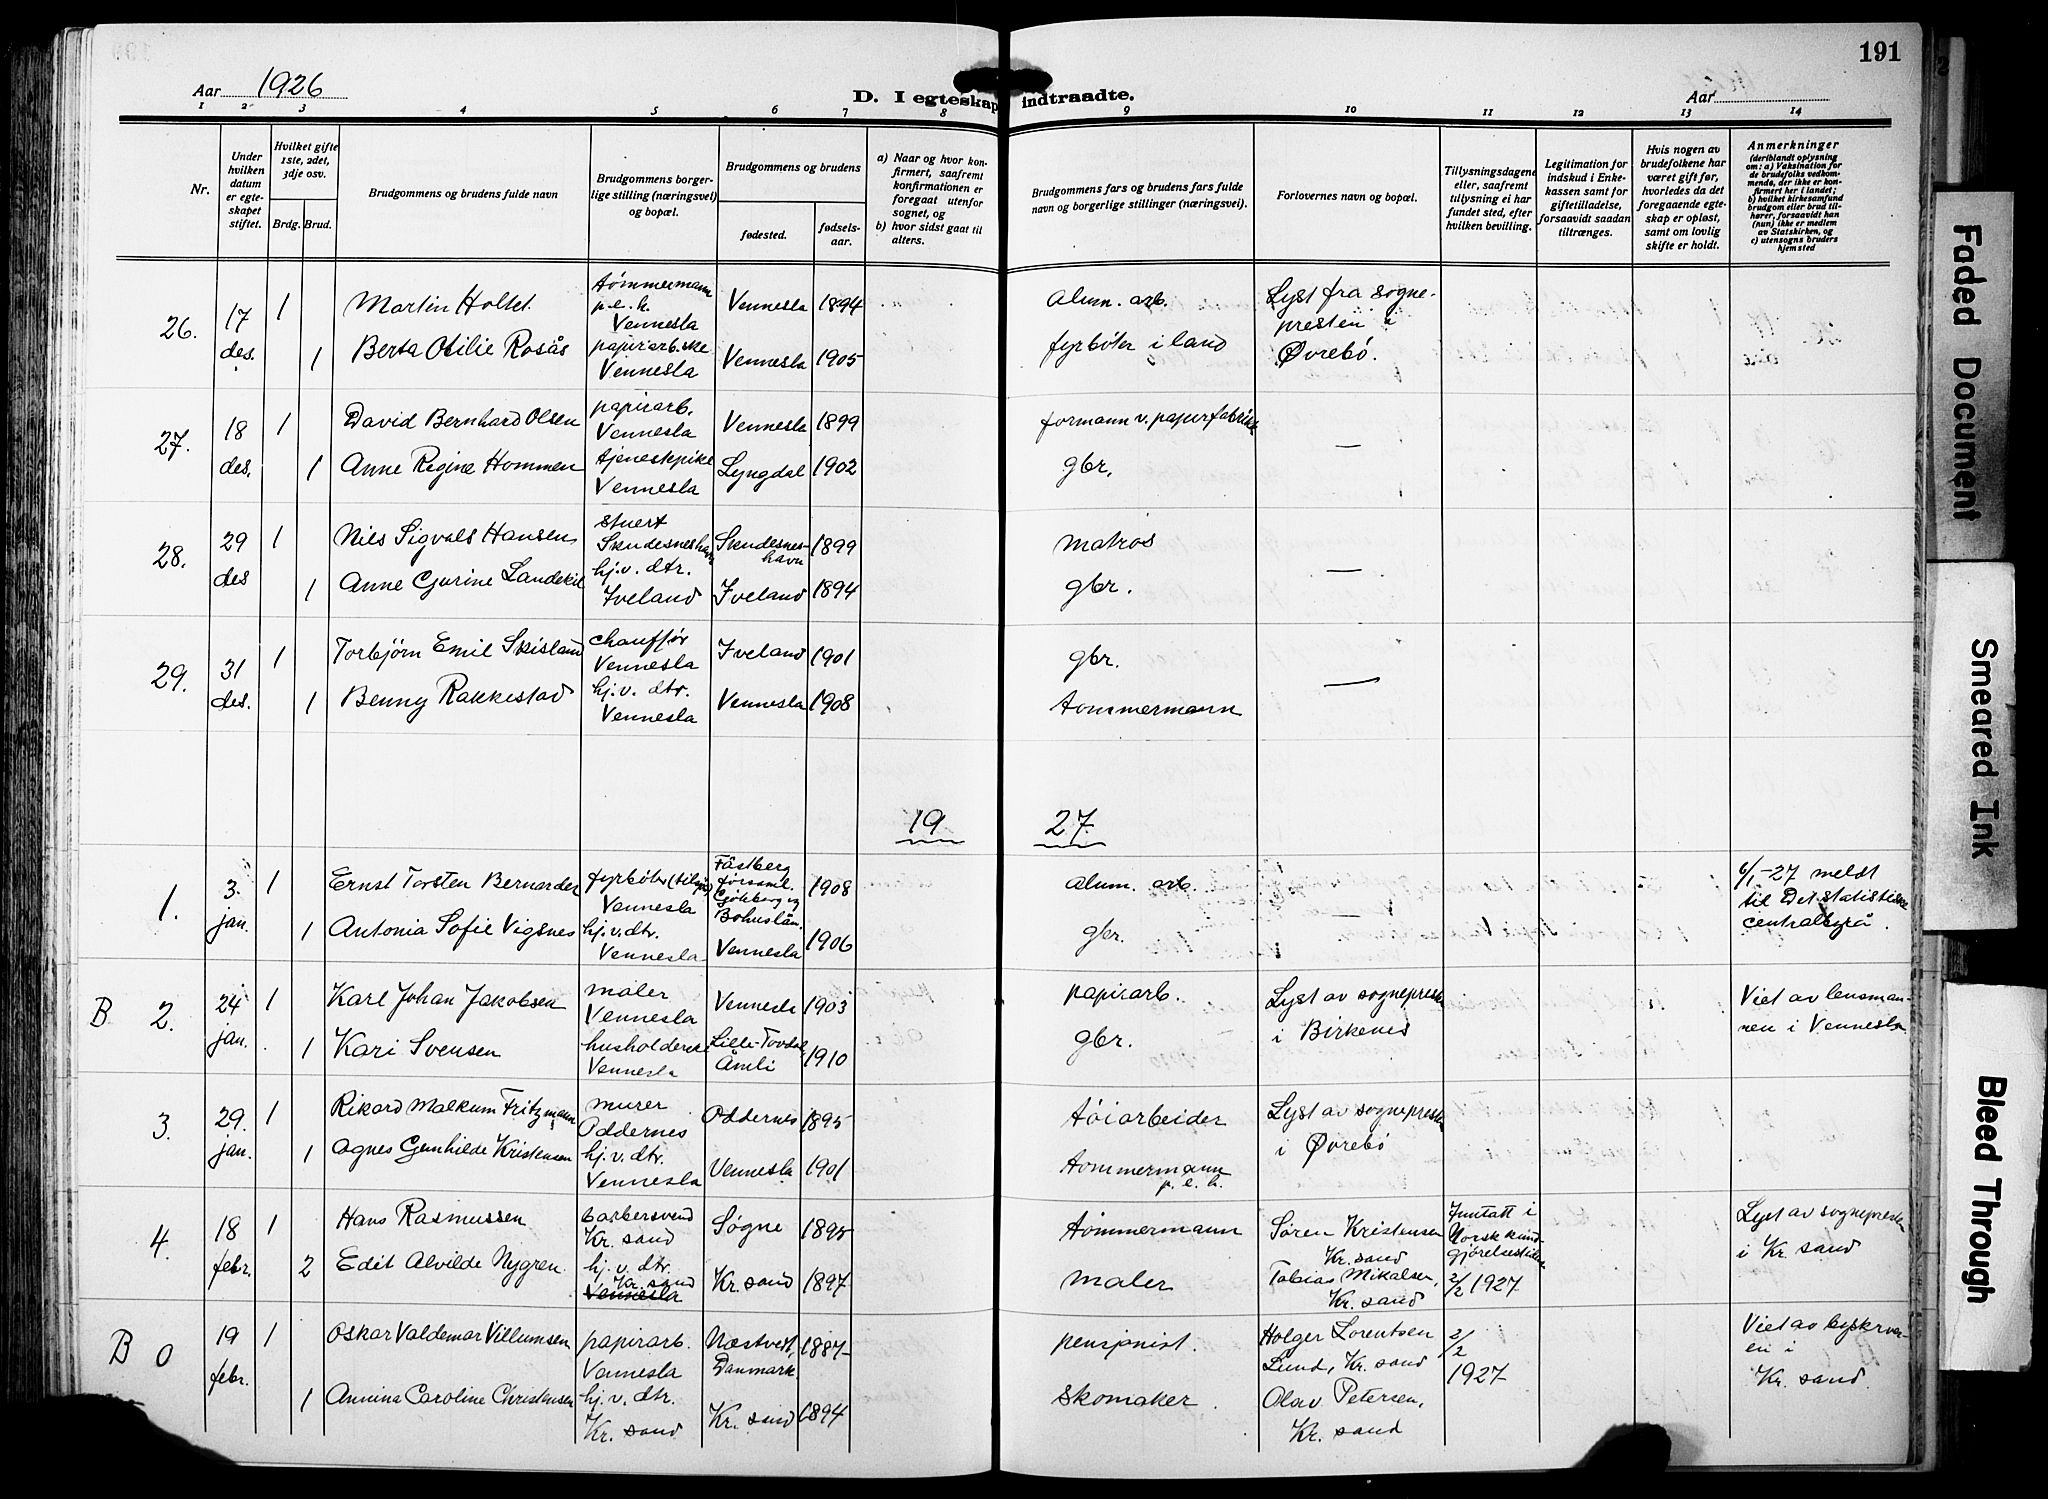 191
Aar 1926
D. I egteskap indtraadte.
Aar
1 2 3 4 5 6 7 8 9 10 11 12 13 14
Nr.
Under hvilken datum er egteskapet stiftet.
Hvilket gifte 1ste, 2det, 3dje osv.
Brdg. Brud.
Brudgommens og brudens fulde navn
Brudgommens borgerlige stilling (næringsvei) og bopæl.
Brudgommens og brudens
fødested.
fødselsaar.
a) Naar og hvor konfirmert, saafremt konfirmationen er foregaat utenfor sognet, og
b) hvor sidst gaat til alters.
Brudgommens fars og brudens fars fulde navn og borgerlige stillinger (næringsvei).
Forlovernes navn og bopæl.
Tillysningsdagene eller, saafremt tillysning ei har fundet sted, efter hvilken bevilling.
Legitimation for indskud i Enkekassen samt for giftetilladelse, forsaavidt saadan tiltrænges.
Hvis nogen av brudefolkene har været gift før, hvorledes da det foregaaende egteskap er opløst, samt om lovlig skifte er holdt.
Anmerkninger
(deriblandt oplysning om: a) Vaksination for de brudefolks vedkommende, der ikke er konfirmert her i landet;
b) hvilket kirkesamfund brudgom eller brud tilhører, forsaavidt han (hun) ikke er medlem av Statskirken, og
c) utensogns bruders hjemsted
26. 17 des. 1 Martin Holtet tømmermann p.e.h. Vennesla Vennesla 1894 alum. arb. Lyst fra sognepresten i Øvrebø.
1 Berta Otilie Rosås papirarb.ske Vennesla Vennesla 1905 fyrbøter i land
27. 18 des. 1 David Bernhard Olsen papirarb. Vennesla Vennesla 1899 formann v. papirfabrikk —
1 Anne Regine Hommen tjenestpike Vennesla Lyngdal 1902 gbr.
28. 29 des 1 Nils Sigvald Hansen stuert Skudesneshavn Skudesneshavn 1899 matros —
1 Anne Gurine Landekil hj.v. dtr. Iveland Iveland 1894 gbr.
29. 31 des. 1 Torbjörn Emil Skisland chauffør Vennesla Iveland 1901 gbr. —
1 Benny Rakkestad hj.v. dtr. Vennesla Vennesla 1908 tømmermann
19 27
1. 3. jan. 1 Ernst Torsten Bernarder fyrbøter (tilsjøs) Vennesla Fåstberg församl. Göteborg og Bohuslän. 1908 alum. arb. — 6/1-27 meldt til Det statistiske centralbyrå.
1 Antonia Sofie Vigsnes hj.v. dtr. Vennesla Vennesla 1906 gbr.
B 2. 24 jan. 1 Karl Johan Jakobsen maler Vennesla Vennesla 1903 papirarb. Lyst av sognepresten i Birkenes Viet av lensmannen i Vennesla
1 Kari Svensen husholderske Vennesla Lille-Tovdal Åmli 1910 gbr.
3. 29. jan. 1 Rikard Malkum Fritzmann murer Oddernes Oddernes 1895 tøiarbeider Lyst av sognepresten i Øvrebø
1 Agnes Gunhilde Kristensen hj.v. dtr. Vennesla Vennesla 1901 tømmermann p.e.h.
4. 18 febr. 1 Hans Rasmussen barbersvend Kr. sand Søgne 1895 tømmermann Søren Kristensen Kr. sand Inntatt i Norsk kundgjørelsestidende 2/2 1927 Lyst av sognepresten i Kr. sand
2 Edit Alvilde Nygren. hj.v. dtr. Kr. sand Vennesla Kr. sand 1897 maler Tobias Mikalsen, Kr. sand
B 0 19 febr. 1 Oskar Valdemar Villumsen papirarb. Vennesla Næstved, Danmark 1887 pensjonist. Holger Lorentsen Lund, Kr. sand 2/2 1927 Viet av byskriveren i Kr. sand
1 Annina Caroline Christensen hj.v. dtr. Kr. sand Kr. sand 1894 skomaker. Olav Petersen, Kr. sand
Faded Document
Smeared Ink
Bleed Through